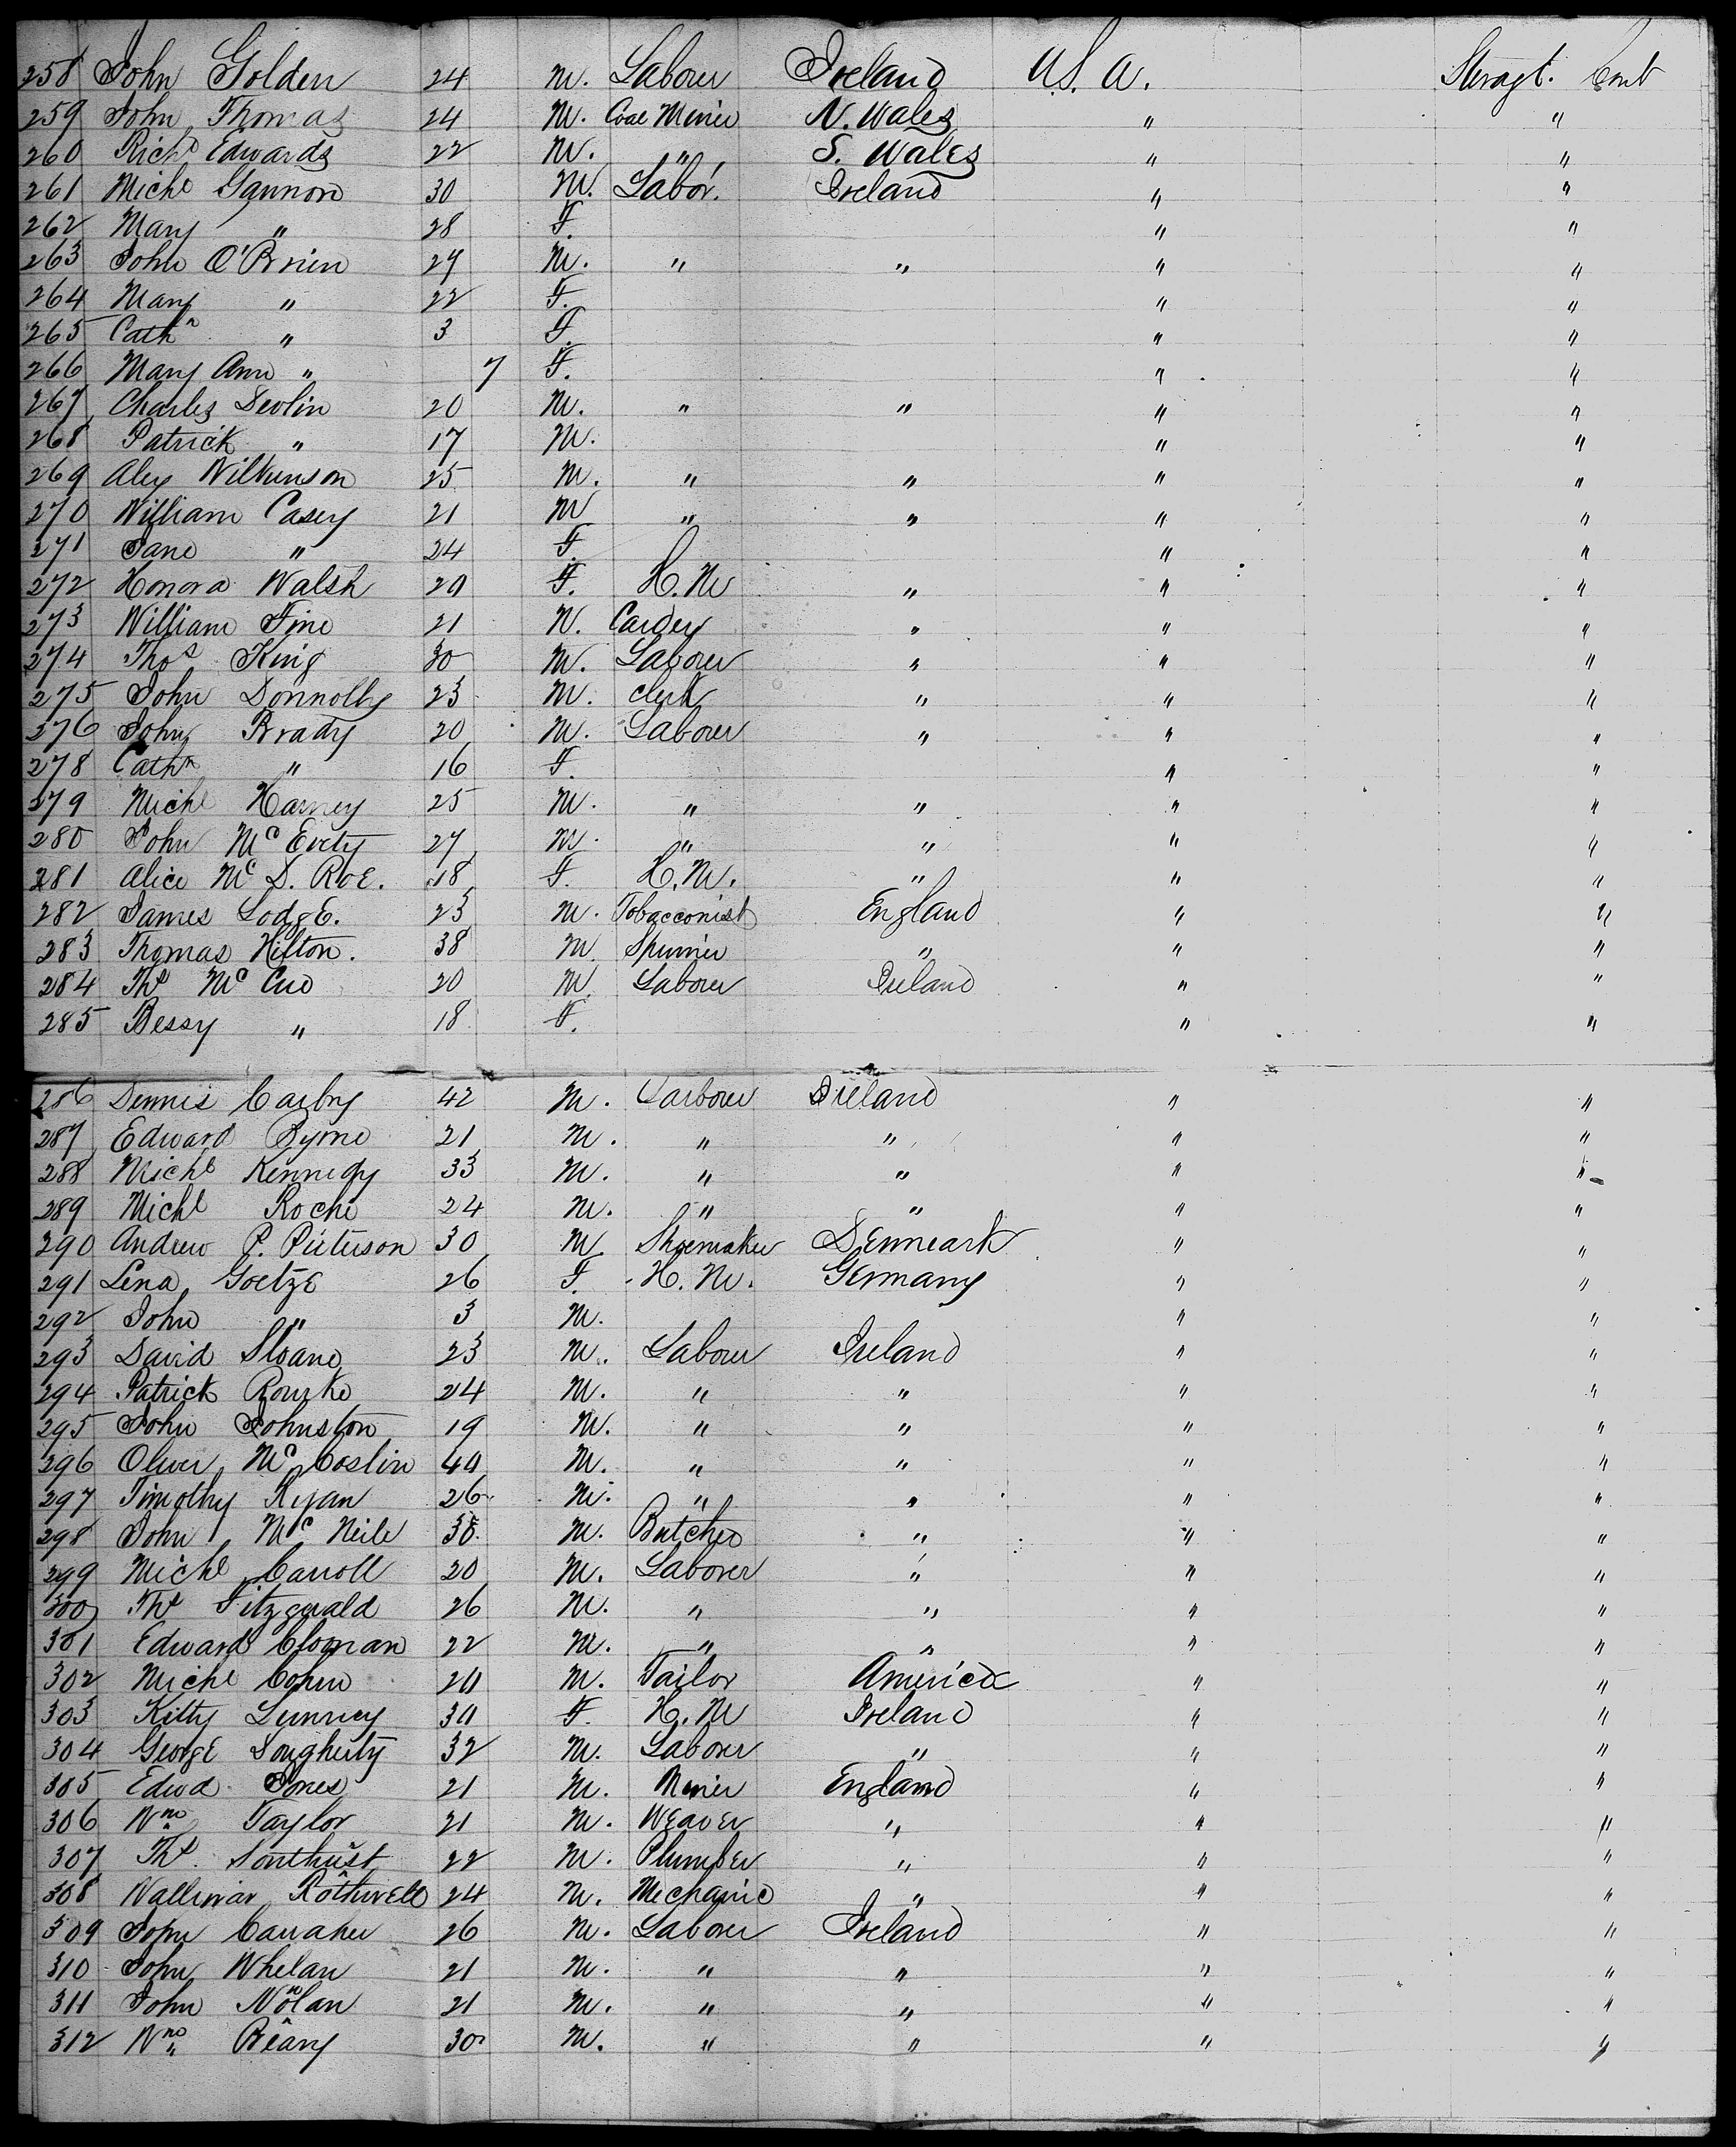 258 John Golden 24 M. Laborer Ireland U.S.A. Steragt. Cont
259 John Thomas 24 M. Coal Miner N. Wales " "
260 Richd Edwards 22 M. " S. Wales " "
261 Michl Gannon 30 M. Labor. Ireland " "
262 Mary " 28 F. " "
263 John O'Brien 27 M. " " " "
264 Mary " 22 F. " "
265 Cathn " 3 F. " "
266 Mary Ann " 7 F. " "
267 Charles Devlin 20 M. " " " "
268 Patrick " 17 M. " "
269 Alex Wilkinson 25 M. " " " "
270 William Casey 21 M " " " "
271 Jane " 24 F. " "
272 Honora Walsh 20 F. H.M " " "
273 William Fine 21 M. " " "
274 Thos King 30 M. Laborer " " "
275 John Donnolly 23 M. Clerk " " "
276 John Brady 20 M. Laborer " " "
278 Cathn " 16 F. " "
279 Michl Harney 25 M. " " " "
280 John Mc Evety 27 M. " " " "
281 Alice Mc D. Roe. 18 F. H.M. " " "
282 James Lodge. 23 M. Tobacconist England " "
283 Thomas Hilton. 38 M. Spinner " " "
284 Ths Mc Cue 20 M. Laborer Ireland " "
285 Bessy " 18 F. " "
286 Dennis Carby 42 M. Larborer Ireland " "
287 Edward Byrne 21 M. " " " "
288 Michl Kennedy 33 M. " " " "
289 Michl Roche 24 M. " " " "
290 Andrew P. Pieterson 30 M. Shoemaker Denmeark " "
291 Lena Goetze 26 F. H.M. Germany " "
292 John " 3 M. " "
293 David Sloane 23 M. Laborer Ireland " "
294 Patrick Rourke 24 M. " " " "
295 John Johnston 19 M. " " " "
296 Oliver Mc Coslin 40 M. " " " "
297 Timothy Ryan 26 M. " " " "
298 John Mc Neile M. Butcher " " "
299 Michl Carroll 20 M. Laborer " " "
300 Ths Fitzgerald 26 M. " " " "
301 Edward Cloman 22 M. " " " "
302 Michl Cohen 20 M. Tailor America " "
303 Kitty Lunney 30 F. H.M Ireland " "
304 George Dougherty 32 M. Laborer " " "
305 Edwd Jones 21 M. Miner England " "
306 Wm Taylor 21 M. Weaver " " "
307 Ths. Southust 22 M. Plumber " " "
308 Rothwell 24 M. Mechanic " " "
309 John Carraher 26 M. Laborer Ireland " "
310 John Whelan 21 M. " " " "
311 John Nolan 21 M. " " " "
312 Wm Beany 30 M. " " " "